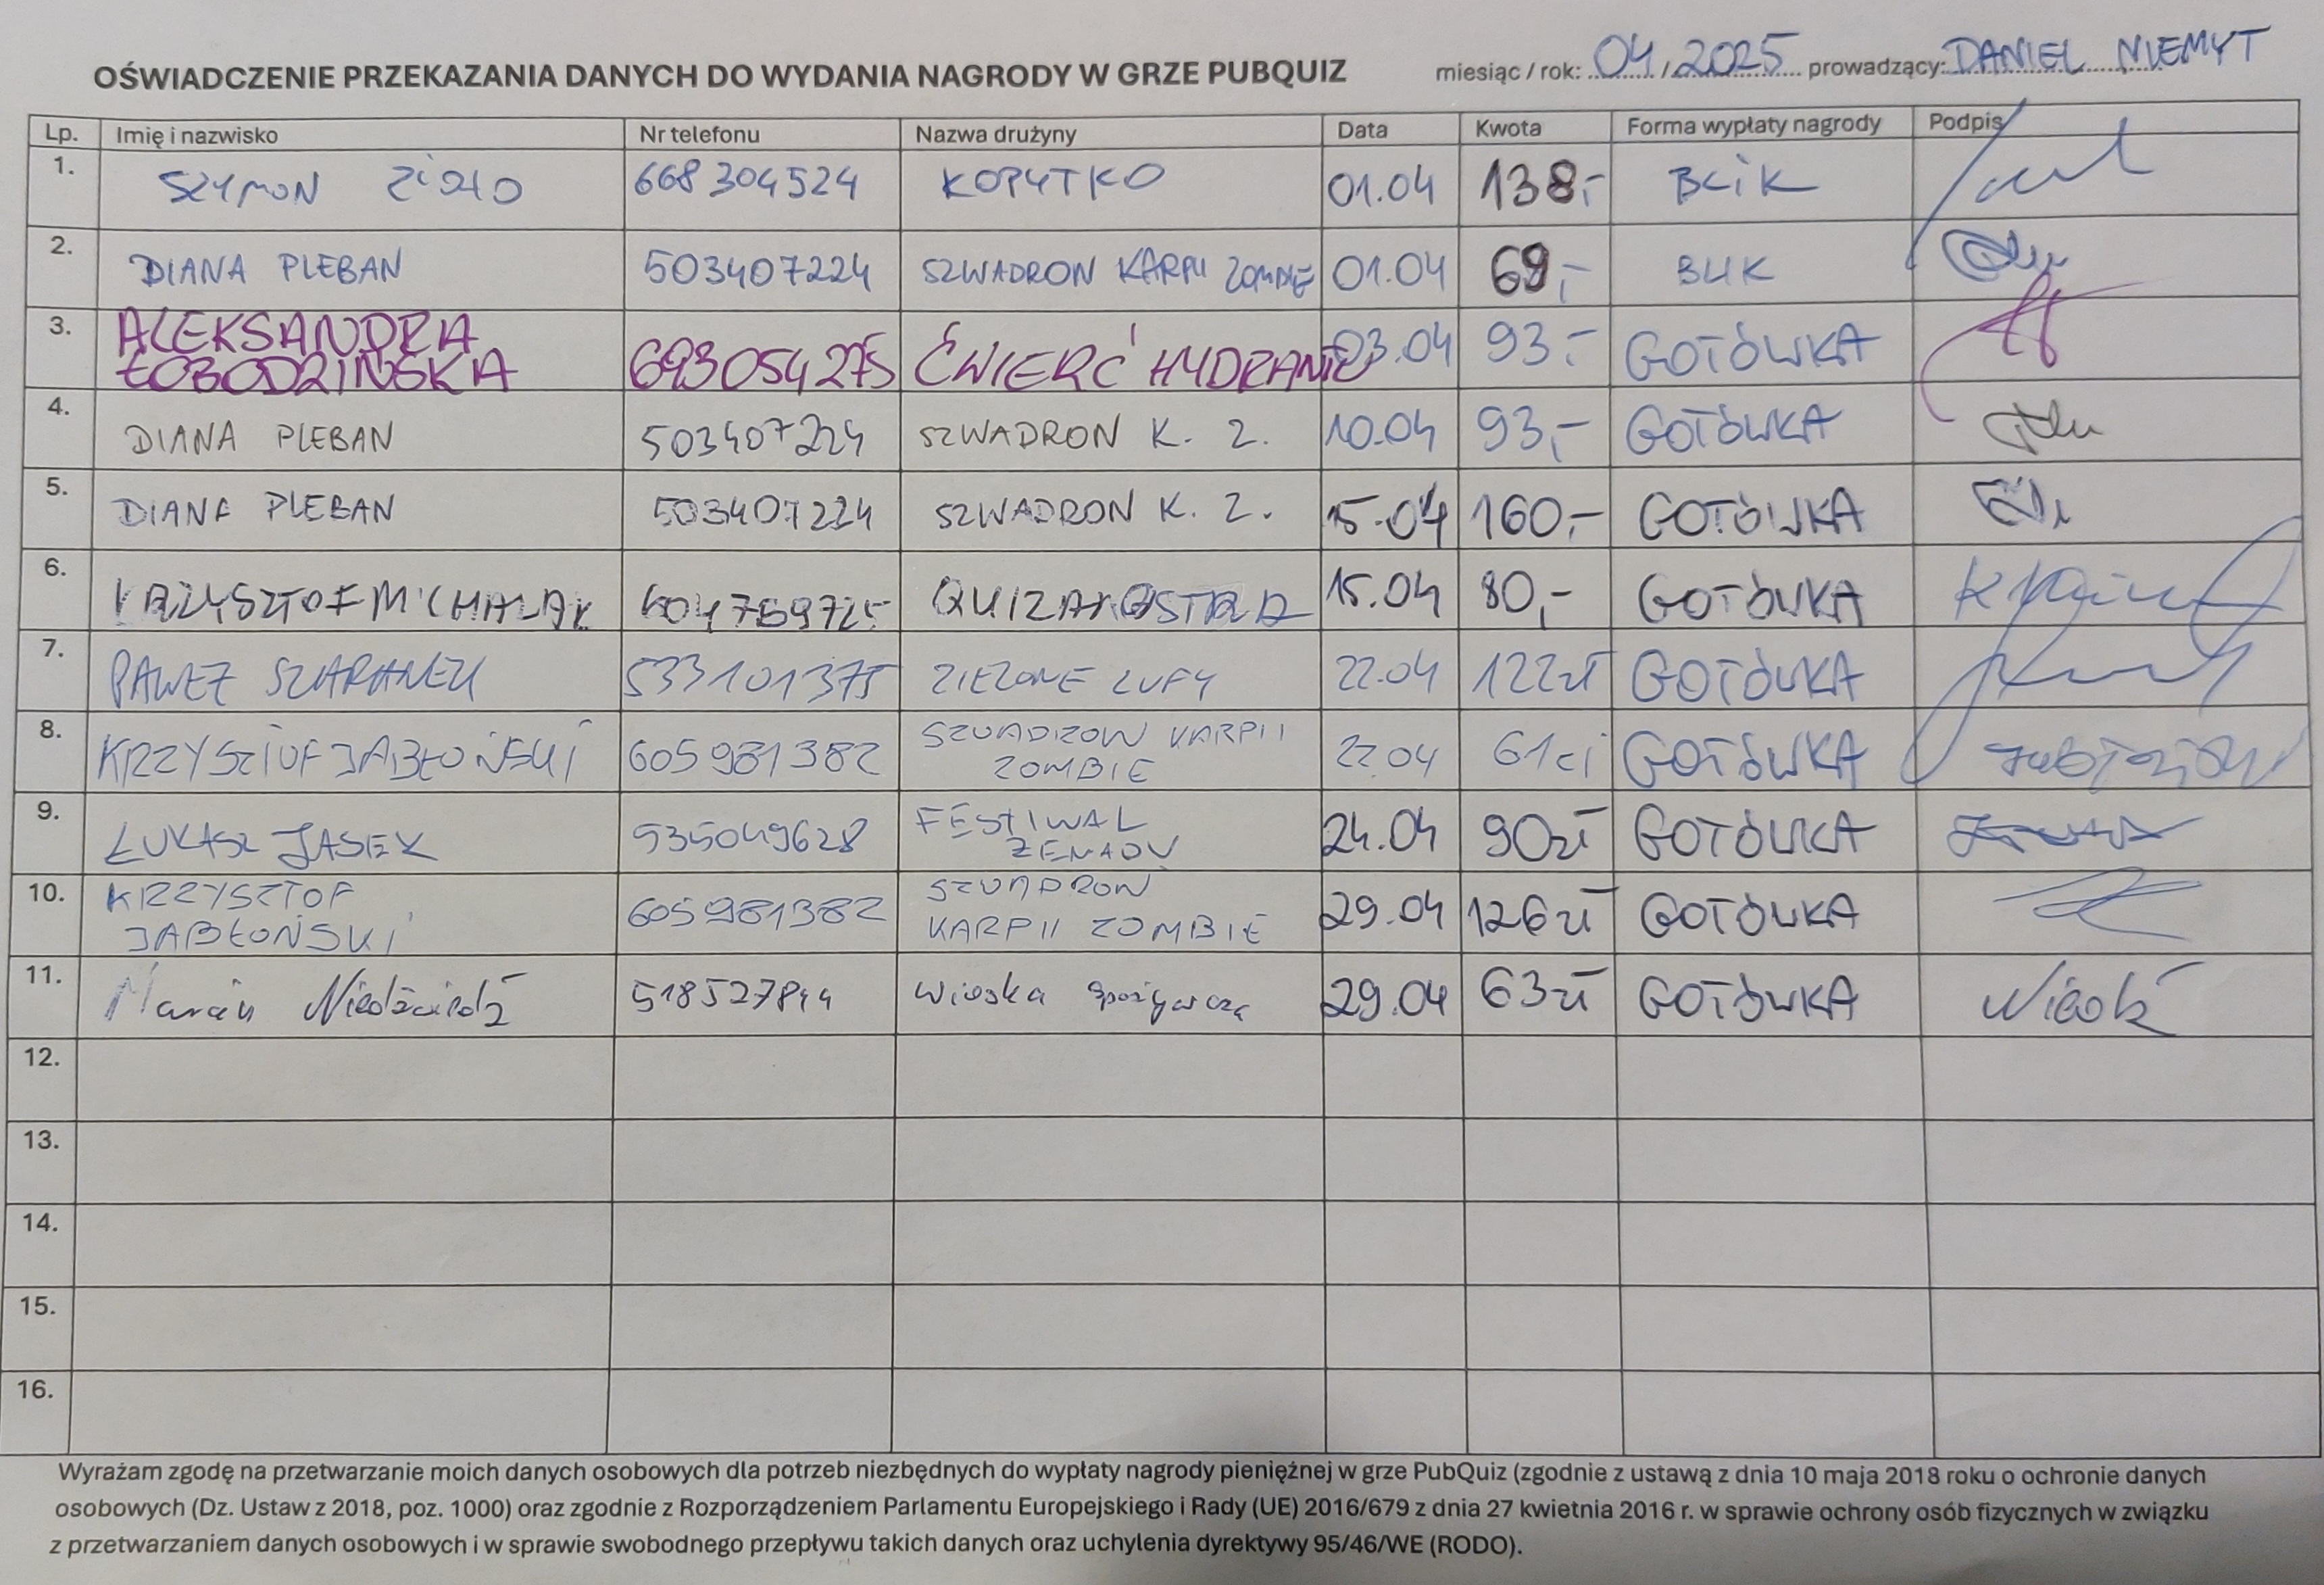 OŚWIADCZENIE PRZEKAZANIA DANYCH DO WYDANIA NAGRODY W GRZE PUBQUIZ miesiąc / rok: 04 / 2025 prowadzący: DANIEL NIEMYT
Lp. Imię i nazwisko Nr telefonu Nazwa drużyny Data Kwota Forma wypłaty nagrody Podpis
1. SZYMON 668 304524 KOPYTKO 01.04 138,- BLIK
2. DIANA PLEBAN 503407224 SZWADRON KARPII ZOMBIE 01.04 69,- BLIK
3. ALEKSANDRA ŁOBODZIŃSKA 693054275 ĆWIERĆ HYDRANTU 03.04 93,- GOTÓWKA
4. DIANA PLEBAN 503407224 SZWADRON K. Z. 10.04 93,- GOTÓWKA
5. DIANA PLEBAN 503407224 SZWADRON K. Z. 15.04 160,- GOTÓWKA
6. KRZYSZTOF MICHALAK 604769725 15.04 80,- GOTÓWKA
7. PAWEŁ 533101375 ZIELONE LUFY 22.04 122zł GOTÓWKA
8. KRZYSZTOF JABŁOŃSKI 605 981 382 SZWADRON KARPII ZOMBIE 22.04 61zł GOTÓWKA
9. ŁUKASZ JASEK 535049628 FESTIWAL ŻENADY 24.04 90zł GOTÓWKA
10. KRZYSZTOF JABŁOŃSKI 605 981382 SZWADRON KARPII ZOMBIE 29.04 126zł GOTÓWKA
11. Marcin Niedźwiedź 518527844 Wioska Spożywcza 29.04 63zł GOTÓWKA
12.
13.
14.
15.
16.
Wyrażam zgodę na przetwarzanie moich danych osobowych dla potrzeb niezbędnych do wypłaty nagrody pieniężnej w grze PubQuiz (zgodnie z ustawą z dnia 10 maja 2018 roku o ochronie danych
osobowych (Dz. Ustaw z 2018, poz. 1000) oraz zgodnie z Rozporządzeniem Parlamentu Europejskiego i Rady (UE) 2016/679 z dnia 27 kwietnia 2016 r. w sprawie ochrony osób fizycznych w związku
z przetwarzaniem danych osobowych i w sprawie swobodnego przepływu takich danych oraz uchylenia dyrektywy 95/46/WE (RODO).